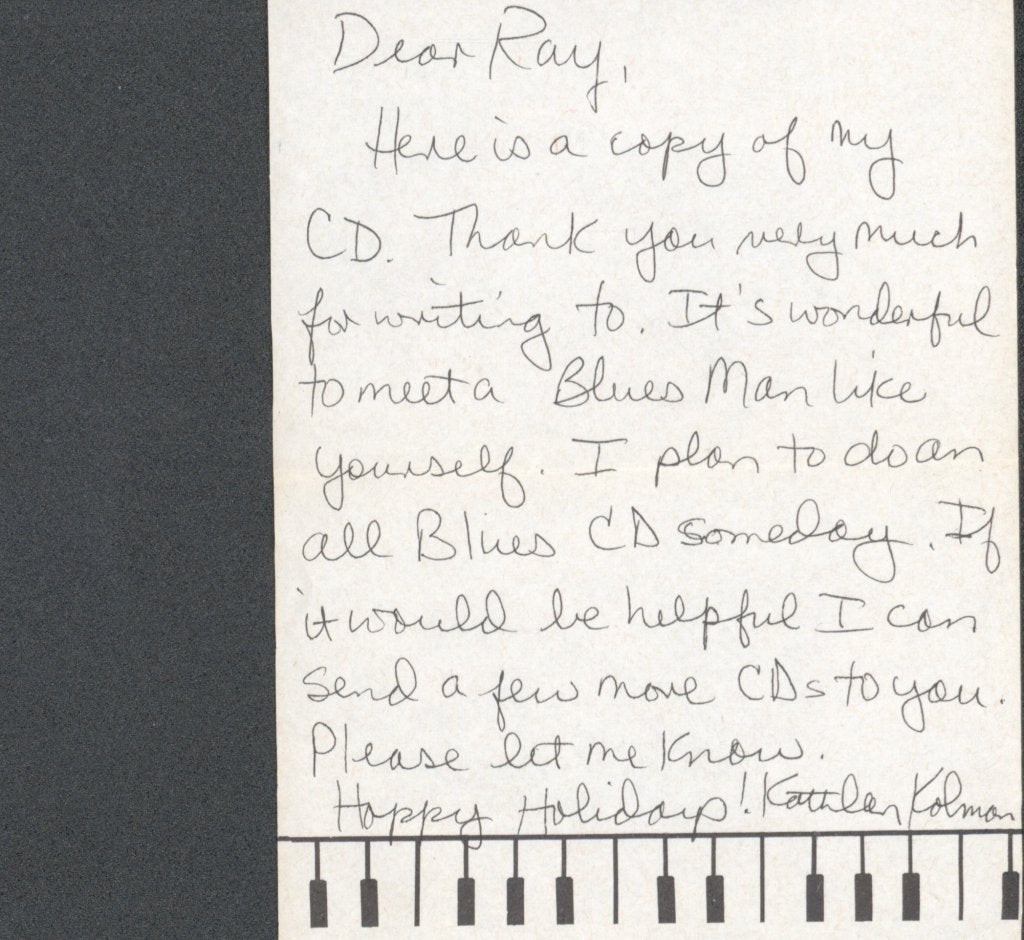 Dear Ray,
Here is a copy of my
CD. Thank you very much
for writing to. It's wonderful
to meet a Blues Man like
yourself. I plan to do an
all Blues CD someday. If
it would be helpful I can
send a few more CDs to you.
Please let me know.
Happy Holidays! Kathleen Kolman